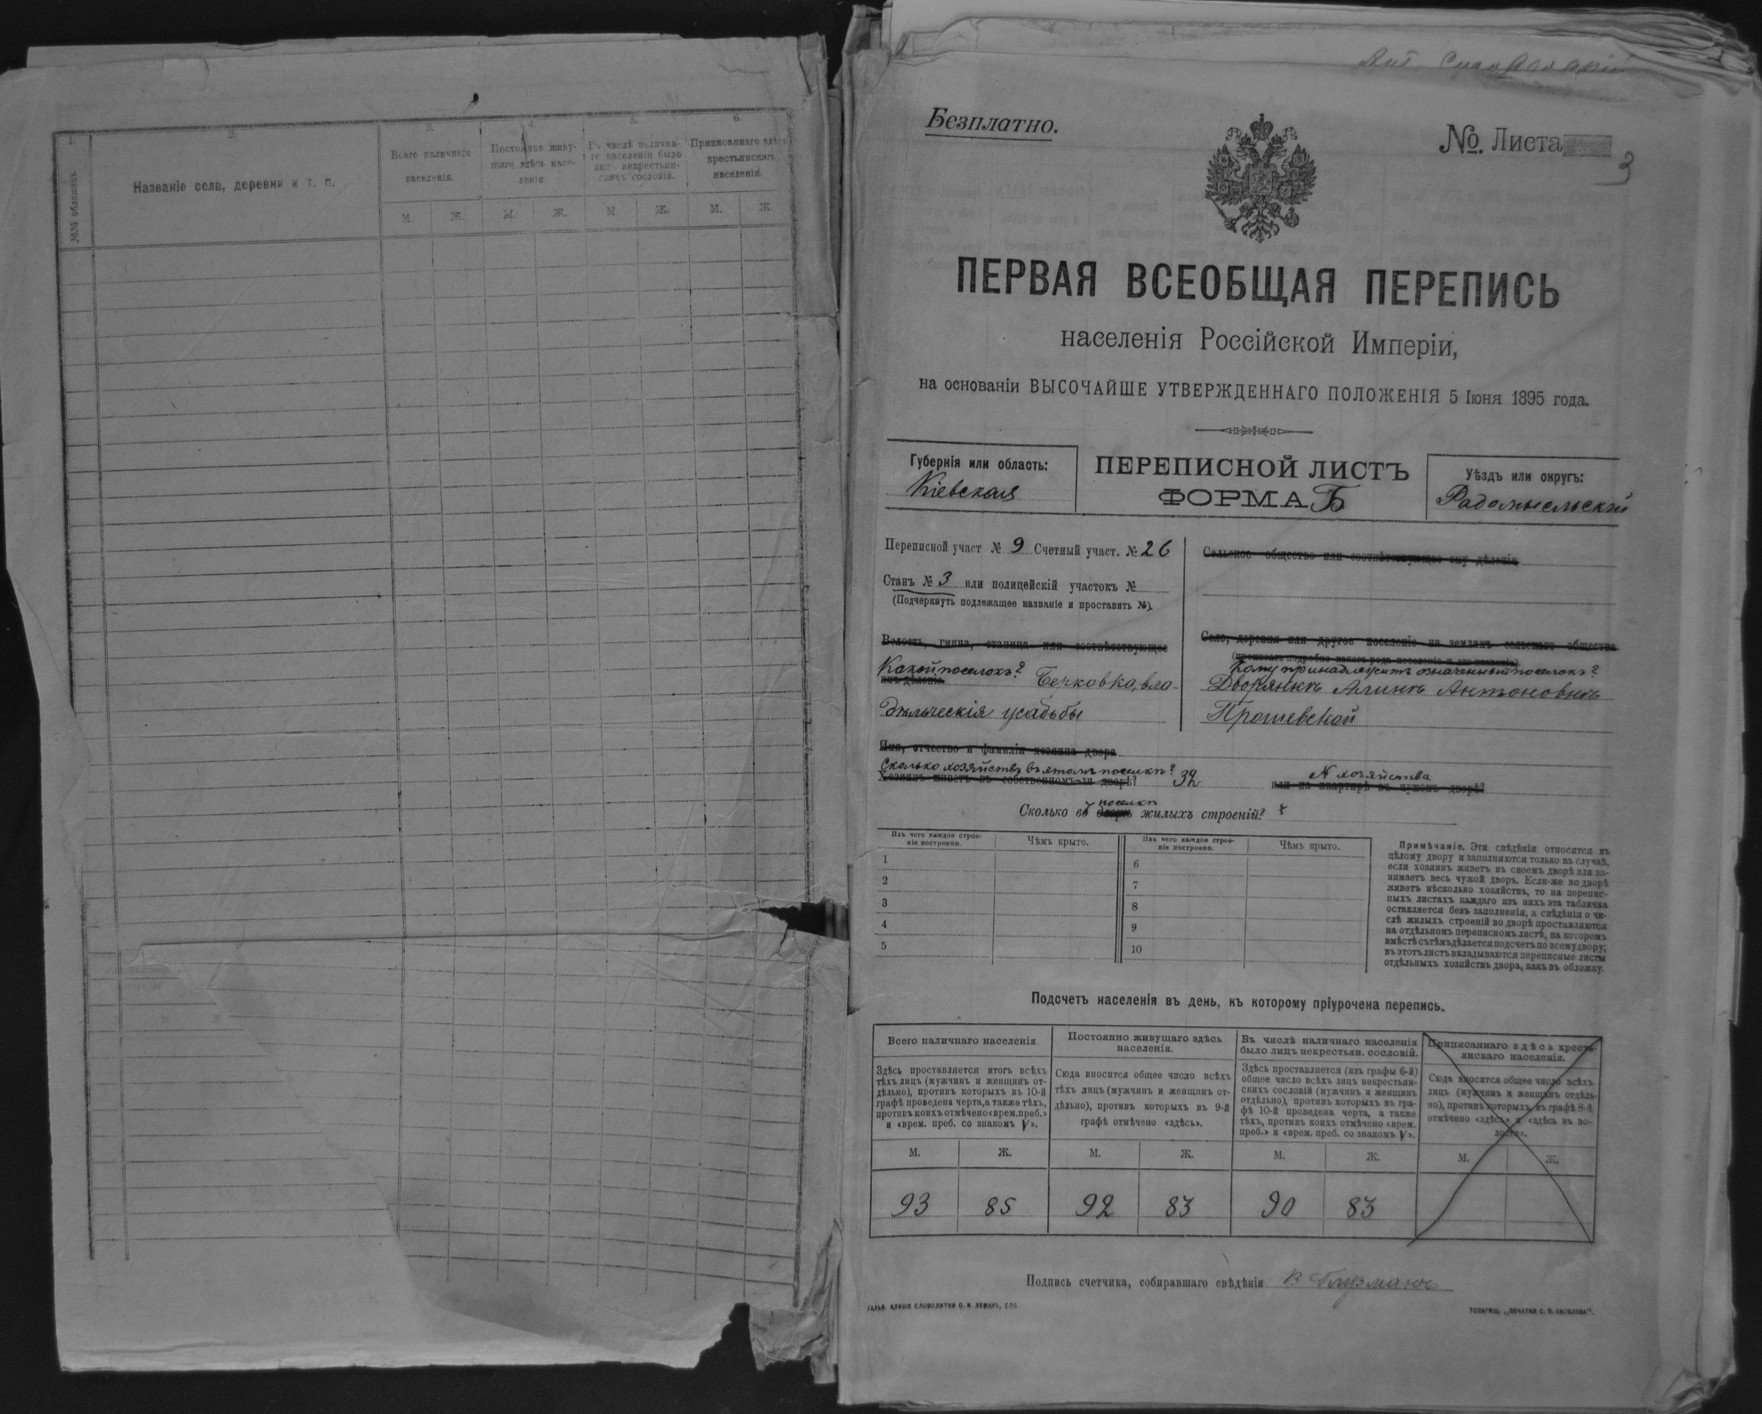 1.
2.
3.
4.
5.
6.
№№ обложекъ.
Названіе села, деревни и т. п.
Всего наличнаго
населенія.
Постоянно живу-
щаго здѣсь насе-
ленія
Въ числѣ налична-
го населенія было
лицъ некрестьян-
скихъ сословій.
Приписаннаго здѣсь
крестьянскаго
населенія.
М. Ж. М. Ж. М Ж. М. Ж.
Безплатно.
№ Листа
3
ПЕРВАЯ ВСЕОБЩАЯ ПЕРЕПИСЬ
населенія Россійской Имперіи,
на основаніи ВЫСОЧАЙШЕ УТВЕРЖДЕННАГО ПОЛОЖЕНІЯ 5 Іюня 1895 года.
Губернія или область:
Кіевская
ПЕРЕПИСНОЙ ЛИСТЪ
ФОРМА Б
Уѣздъ или округъ:
Радомысльскій
Переписной участ № 9 Счетный участ. № 26
Станъ № 3 или полицейскій участокъ №
(Подчеркнуть подлежащее названіе и проставить №).
Волость, гмина, станица или соотвѣтствующее
Какой поселокъ?
имъ дѣленіе
Бечковка, вла-
дѣльческія усадьбы
Сельское общество или соотвѣтствующее ему дѣленіе
Село, деревня или другое поселеніе на земляхъ сельскаго общества
Кому принадлежитъ означенный поселокъ?
Дворянкѣ Алинѣ Антоновнѣ
Прошевской
Имя, отчество и фамилія хозяина двора
Сколько хозяйствъ въ этомъ поселкѣ?
Хозяинъ живетъ въ собственномъ-ли дворѣ? 32
№ хозяйства
или на квартирѣ въ чужомъ дворѣ?
поселкѣ
Сколько въ дворѣ жилыхъ строеній?
Изъ чего каждое строе-
ніе построено.
Чѣмъ крыто.
Изъ чего каждое строе-
ніе построено.
Чѣмъ крыто.
1 6
2 7
3 8
4 9
5 10
Примѣчаніе. Эти свѣдѣнія относятся къ
цѣлому двору и заполняются только въ случаѣ,
если хозяинъ живетъ въ своемъ дворѣ или за-
нимаетъ весь чужой дворъ. Если-же во дворѣ
живетъ нѣсколько хозяйствъ, то на перепис-
ныхъ листахъ каждаго изъ нихъ эта табличка
оставляется безъ заполненія, а свѣдѣнія о чи-
слѣ жилыхъ строеній во дворѣ проставляются
на отдѣльномъ переписномъ листѣ, на которомъ
вмѣстѣ съ тѣмъ дѣлается подсчетъ по всему двору;
въ этотъ листъ вкладываются переписные листы
отдѣльныхъ хозяйствъ двора, какъ въ обложку.
Подсчетъ населенія въ день, къ которому пріурочена перепись.
Всего наличнаго населенія.
Здѣсь проставляется итогъ всѣхъ
тѣхъ лицъ (мужчинъ и женщинъ от-
дѣльно), противъ которыхъ въ 10-й
графѣ проведена черта, а также тѣхъ,
противъ коихъ отмѣчено «врем. преб.»
и «врем. преб. со знакомъ V».
Постоянно живущаго здѣсь
населенія.
Сюда вносится общее число всѣхъ
тѣхъ лицъ (мужчинъ и женщинъ от-
дѣльно), противъ которыхъ въ 9-й
графѣ отмѣчено «здѣсь».
Въ числѣ наличнаго населенія
было лицъ некрестьян. сословій.
Здѣсь проставляется (изъ графы 6-й)
общее число всѣхъ лицъ некрестьян-
скихъ сословій (мужчинъ и женщинъ
отдѣльно), противъ которыхъ въ гра-
фѣ 10-й проведена черта, а также
тѣхъ, противъ коихъ отмѣчено «врем.
преб.» и «врем. преб. со знакомъ V».
Приписаннаго здѣсь кресть-
янскаго населенія.
Сюда вносится общее число всѣхъ
лицъ (мужчинъ и женщинъ отдѣль-
но), противъ которыхъ въ графѣ 8-й
отмѣчено «здѣсь» и «здѣсь въ во-
лости».
М. Ж. М. Ж. М. Ж. М. Ж.
93 85 92 83 90 83
Подпись счетчика, собиравшаго свѣдѣнія